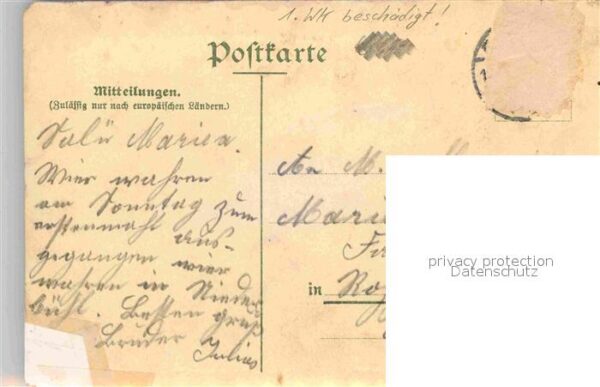 1. WK beschädigt!
Postkarte
Mitteilungen.
(Zulässig nur nach europäischen Ländern.)
Salü Mariea.
Wier wahren
am Sonntag zum
erstenmahl aus-
gegangen wier
wahren in Nieder
bühl. Besten gruß
Bruder Julius
An M.
Marie
in Ro
privacy protection
Datenschutz